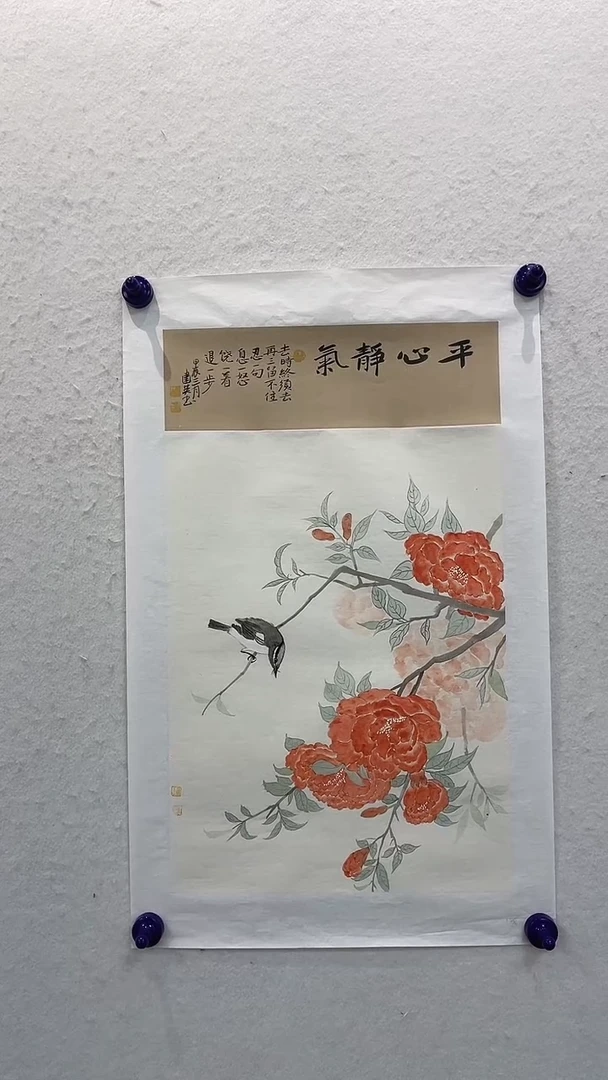 平心靜氣
去時終須去
再三留不住
忍一句
息一怒
饒一着
退一步
甲辰三月